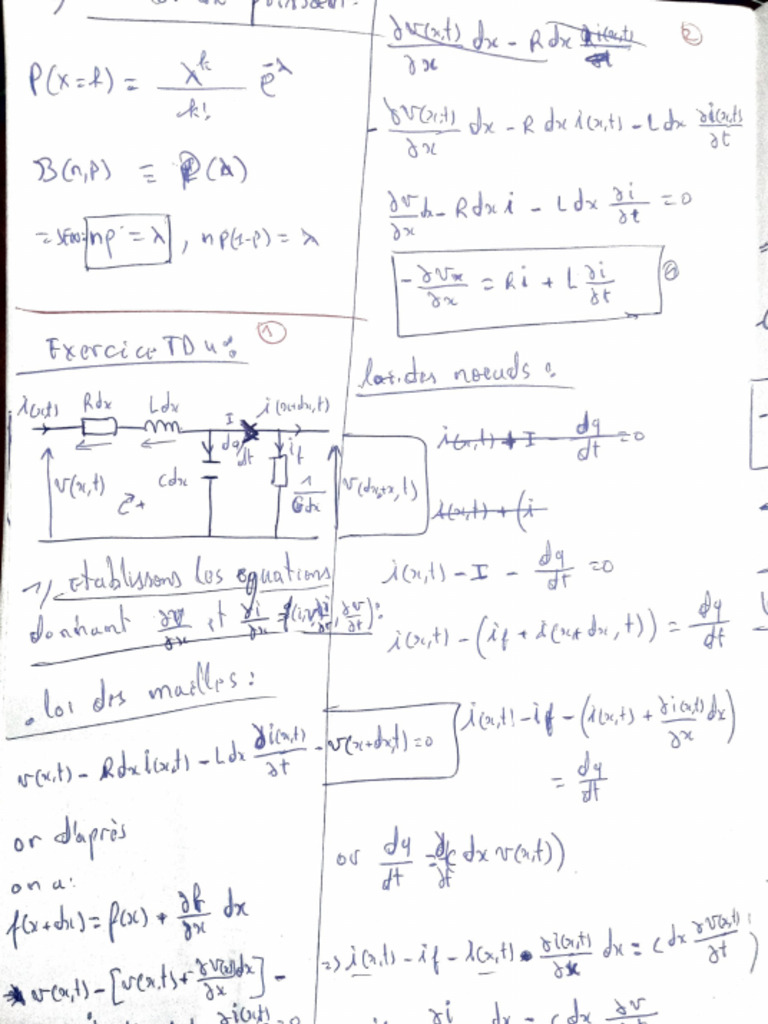 P(x=k) = λ^k / k! e^-λ
B(n,p) ≡ P(λ)
np = λ , np(1-p) = λ
①
Exercice TD n°
i(x,t) Rdx Ldx I i(x+dx,t)
dq/dt if
v(x,t) Cdx 1/Gdx v(dx+x,t)
1) etablissons les equations
donnant ∂v/∂x et ∂i/∂x
. loi des mailles :
v(x,t) - Rdx i(x,t) - Ldx ∂i(x,t)/∂t - v(x+dx,t) = 0
or d'après
on a:
f(x+dx) = f(x) + ∂f/∂x dx
v(x,t) - [v(x,t) + ∂v(x,t)dx/∂x] -
②
∂v(x,t)/∂x dx - R dx i(x,t)
- ∂v(x,t)/∂x dx - R dx i(x,t) - L dx ∂i(x,t)/∂t
∂v/∂x dx - R dx i - L dx ∂i/∂t = 0
- ∂v/∂x = Ri + L ∂i/∂t
loi des noeuds :
i(x,t) + I - dq/dt = 0
i(x,t) + (i
i(x,t) - I - dq/dt = 0
i(x,t) - (if + i(x+dx,t)) = dq/dt
i(x,t) - if - (i(x,t) + ∂i(x,t)/∂x dx)
= dq/dt
or dq/dt = dx v(x,t))
=> i(x,t) - if - i(x,t) - ∂i(x,t)/∂x dx = c dx ∂v(x,t)/∂t
∂i dx = c dx ∂v